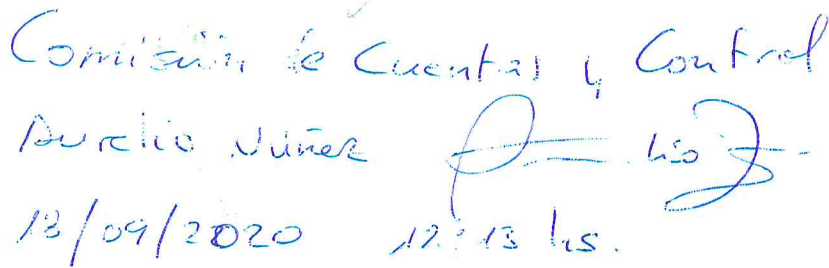 Comisión de Cuentas y Control
Aurelio Núñez
18/09/2020 12:13 hs.